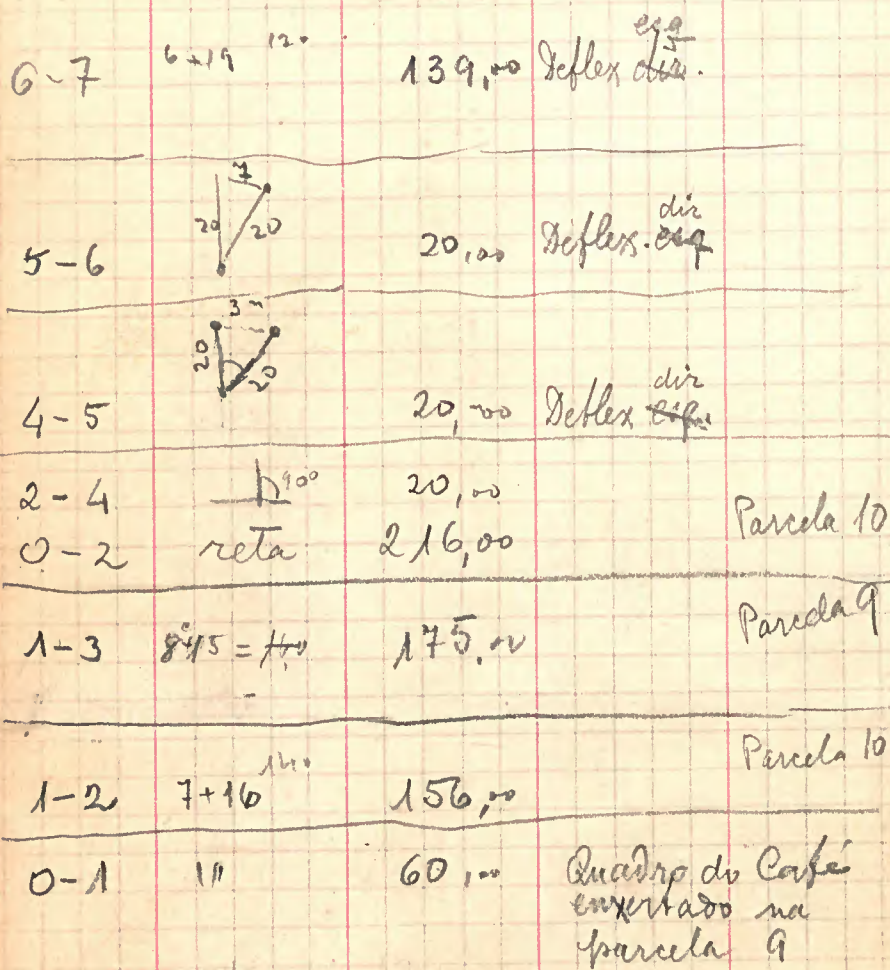 6-7 6+19 120 139,00 Deflex esq
7
20 20
5-6 20,00 Deflex. dir
3 m
20 20
4-5 20,00 Deflex dir
2-4 90° 20,00
0-2 reta 216,00 Parcela 10
1-3 8+15 = 175,00 Parcela 9
1-2 7+16 140 156,00 Parcela 10
0-1 111 60,00 Quadro do Café
enxertado na
parcela 9